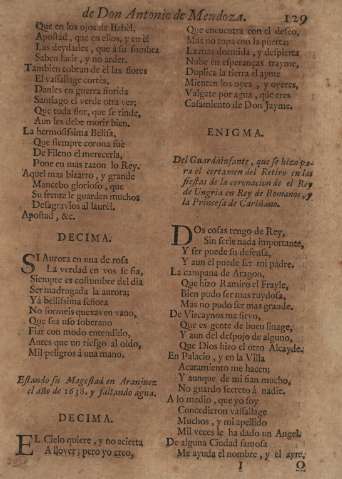 de Don Antonio de Mendoza. 129
Que en los ojos de Belisa,
Apostad, que en ellos, y en èl
Las deydades, que à su sombra
Saben lucir, y no arder.
Tambien cobran de èl las flores
El vassallage cortès,
Danles en guerra florida
Santiago el verde otra vez;
Que cada flor, que se rinde,
Aun les debe morir bien.
La hermosissima Belisa,
Que siempre corona fuè
De Fileno el merecerla,
Pone en mas razon lo Rey.
Aquel mas bizarro, y grande
Mancebo glorioso, que
Su frente le guarden muchos
Desagravios al laurèl.
Apostad, &c.
DECIMA.
SI Aurora en una de rosa
La verdad en vos se fia,
Siempre es costumbre del dia
Ser madrugada la aurora;
Yà bellissima señora
No formeis quexas en vano,
Que sea uso soberano
Fiar con modo entendido,
Antes que un riesgo al oido,
Mil peligros à una mano.
Estando su Magestad en Aranjuez
el año de 1638. y faltando agua.
DECIMA.
EL Cielo quiere, y no acierta
A llover; pero yo creo,
Que encuentra con el deseo,
Mas no topa con la puerta:
La mas ofrecida, y despierta
Nube en esperanças trayme,
Duplica la tierra el ayme
Mienten los ojos, y oyeres,
Valgate por agua, que eres
Casamiento de Don Jayme.
ENIGMA.
Del Guardainfante, que se hizo pa-
ra el certamen del Retiro en las
fiestas de la coronacion de el Rey
de Ungria en Rey de Romanos, y
la Princesa de Cariñano.
DOs cosas tengo de Rey,
Sin serle nada importante,
Y ser puede su defensa,
Y aun èl puede ser mi padre.
La campana de Aragon,
Que hizo Ramiro el Frayle,
Bien pudo ser mas ruydosa,
Mas no pudo ser mas grande.
De Vizcaynos me sirvo,
Que es gente de buen linage,
Y aun del despojo de alguno,
Que Dios hizo el otro Alcayde.
En Palacio, y en la Villa
Acatamiento me hacen;
Y aunque de mi fian mucho,
No guardo secreto à nadie.
A lo medico, que yo soy
Concedieron vassallage
Muchos, y mi apellido
Mil veces le ha dado un Angel.
De alguna Ciudad famosa
Me ayuda el nombre, y el ayre,
I O